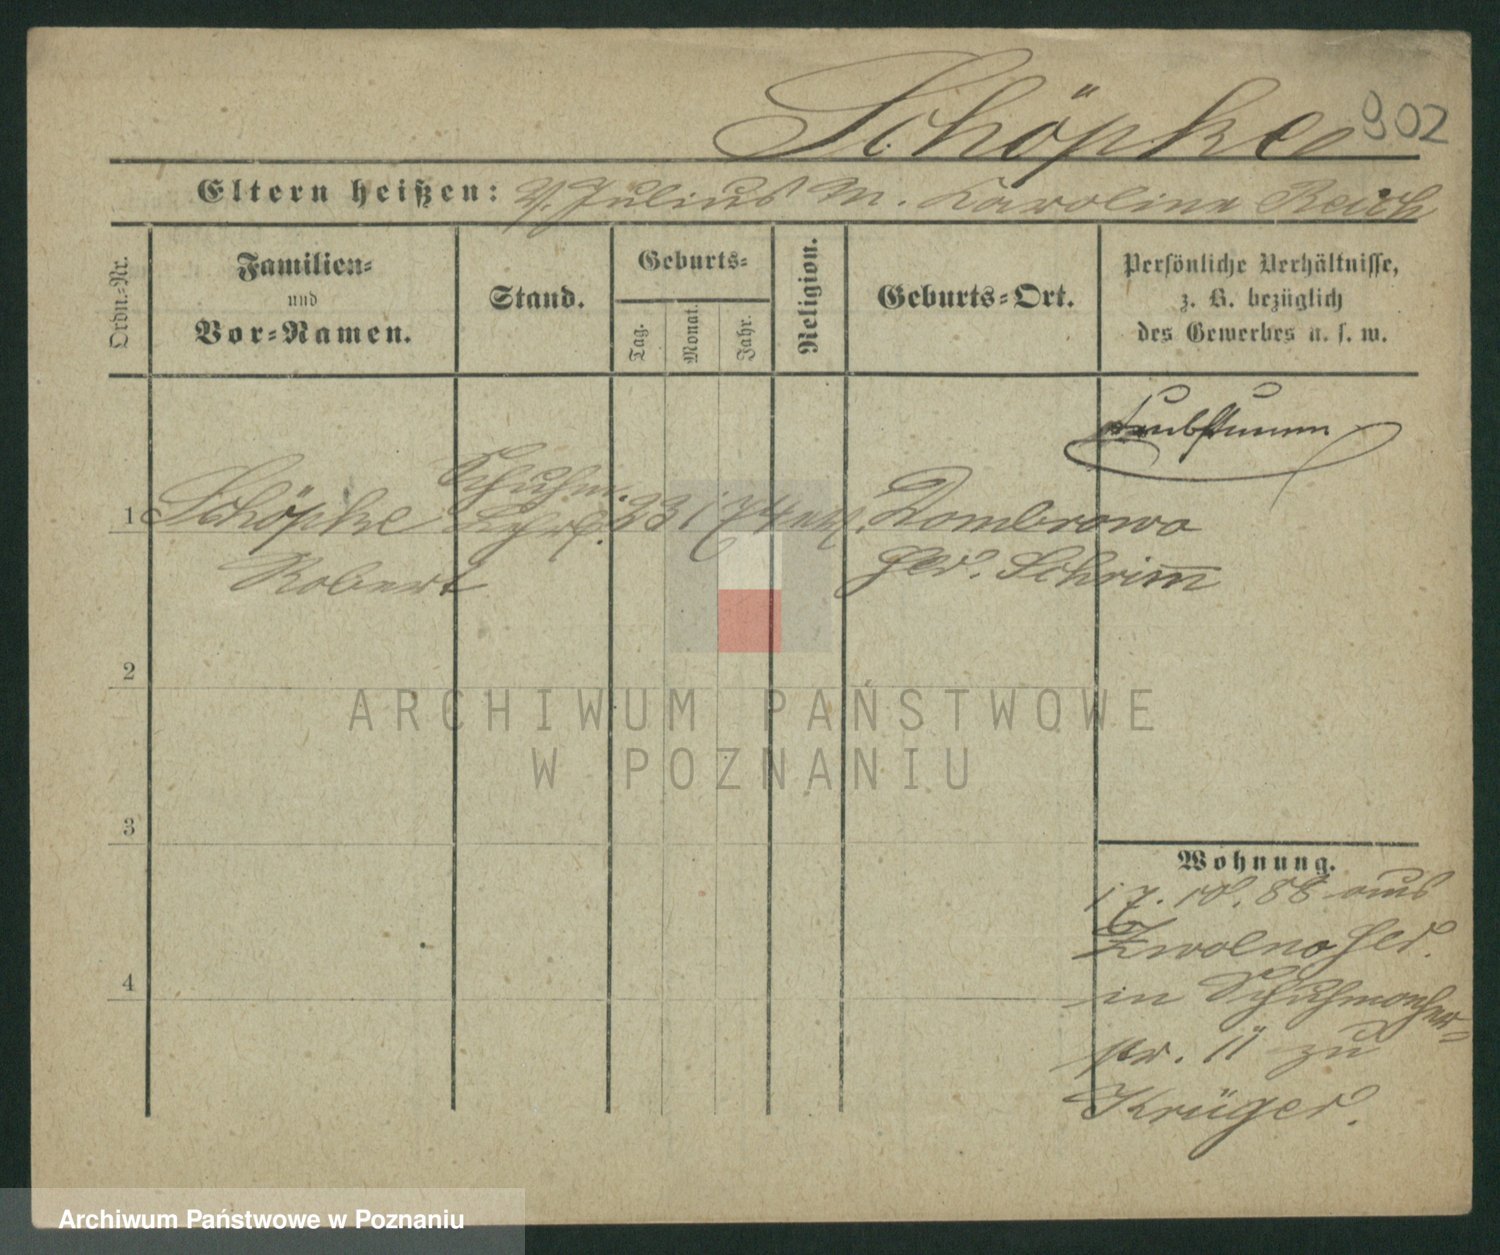 Schöpke 902
Eltern heißen: V. Julius M. Karoline Reich
Ordn.-Nr.
Familien-
und
Vor-Namen.
Stand.
Geburts-
Tag.
Monat.
Jahr.
Religion.
Geburts-Ort.
Persönliche Verhältnisse,
z. B. bezüglich
des Gewerbes u. s. w.
Taubstumm
1 Schöpke Schuhm. 23 74 Dombrowo
Robert Schrimm
2
3
4
Wohnung.
17. 10. 88 aus
Zwolno
in Schuhmacher-
str. 11 zu
Krüger.
ARCHIWUM PAŃSTWOWE
W POZNANIU
Archiwum Państwowe w Poznaniu